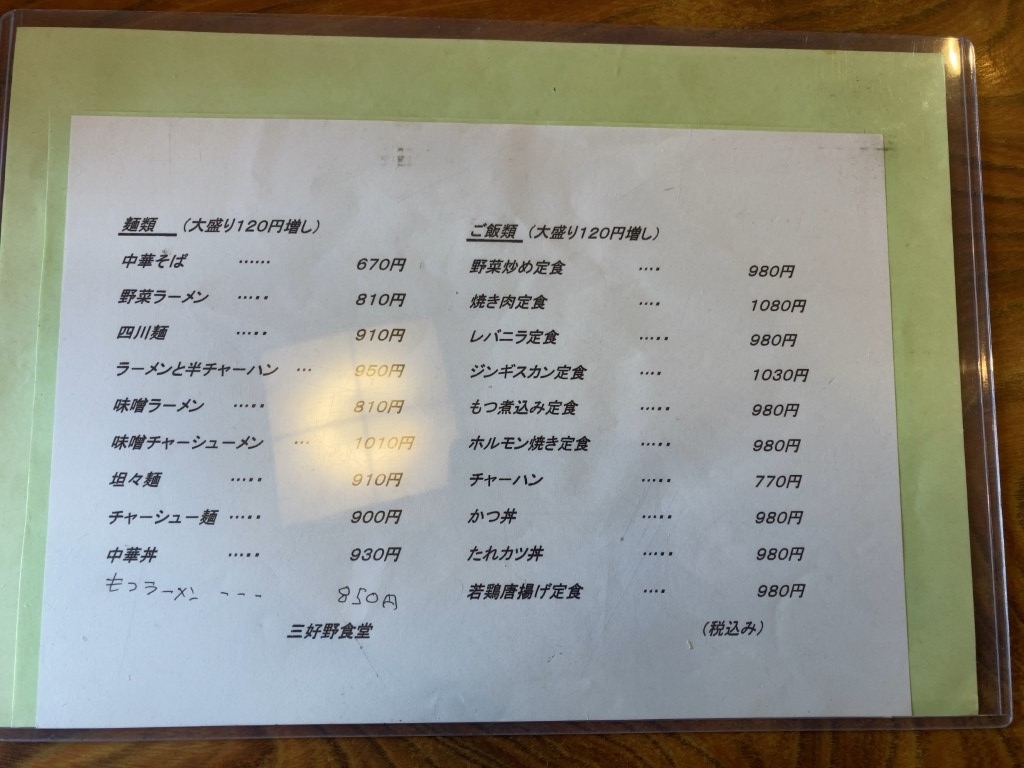 麺類 （大盛り120円増し）
中華そば ‥‥‥ 670円
野菜ラーメン ‥‥‥ 810円
四川麺 ‥‥‥ 910円
ラーメンと半チャーハン … 950円
味噌ラーメン ‥‥‥ 810円
味噌チャーシューメン … 1010円
坦々麺 ‥‥‥ 910円
チャーシュー麺 ‥‥‥ 900円
中華丼 ‥‥‥ 930円
もつラーメン --- 850円
三好野食堂
ご飯類 （大盛り120円増し）
野菜炒め定食 ‥‥ 980円
焼き肉定食 ‥‥ 1080円
レバニラ定食 ‥‥‥ 980円
ジンギスカン定食 ‥‥ 1030円
もつ煮込み定食 ‥‥‥ 980円
ホルモン焼き定食 ‥‥‥ 980円
チャーハン ‥‥‥ 770円
かつ丼 ‥‥‥ 980円
たれカツ丼 ‥‥‥ 980円
若鶏唐揚げ定食 ‥‥ 980円
（税込み）